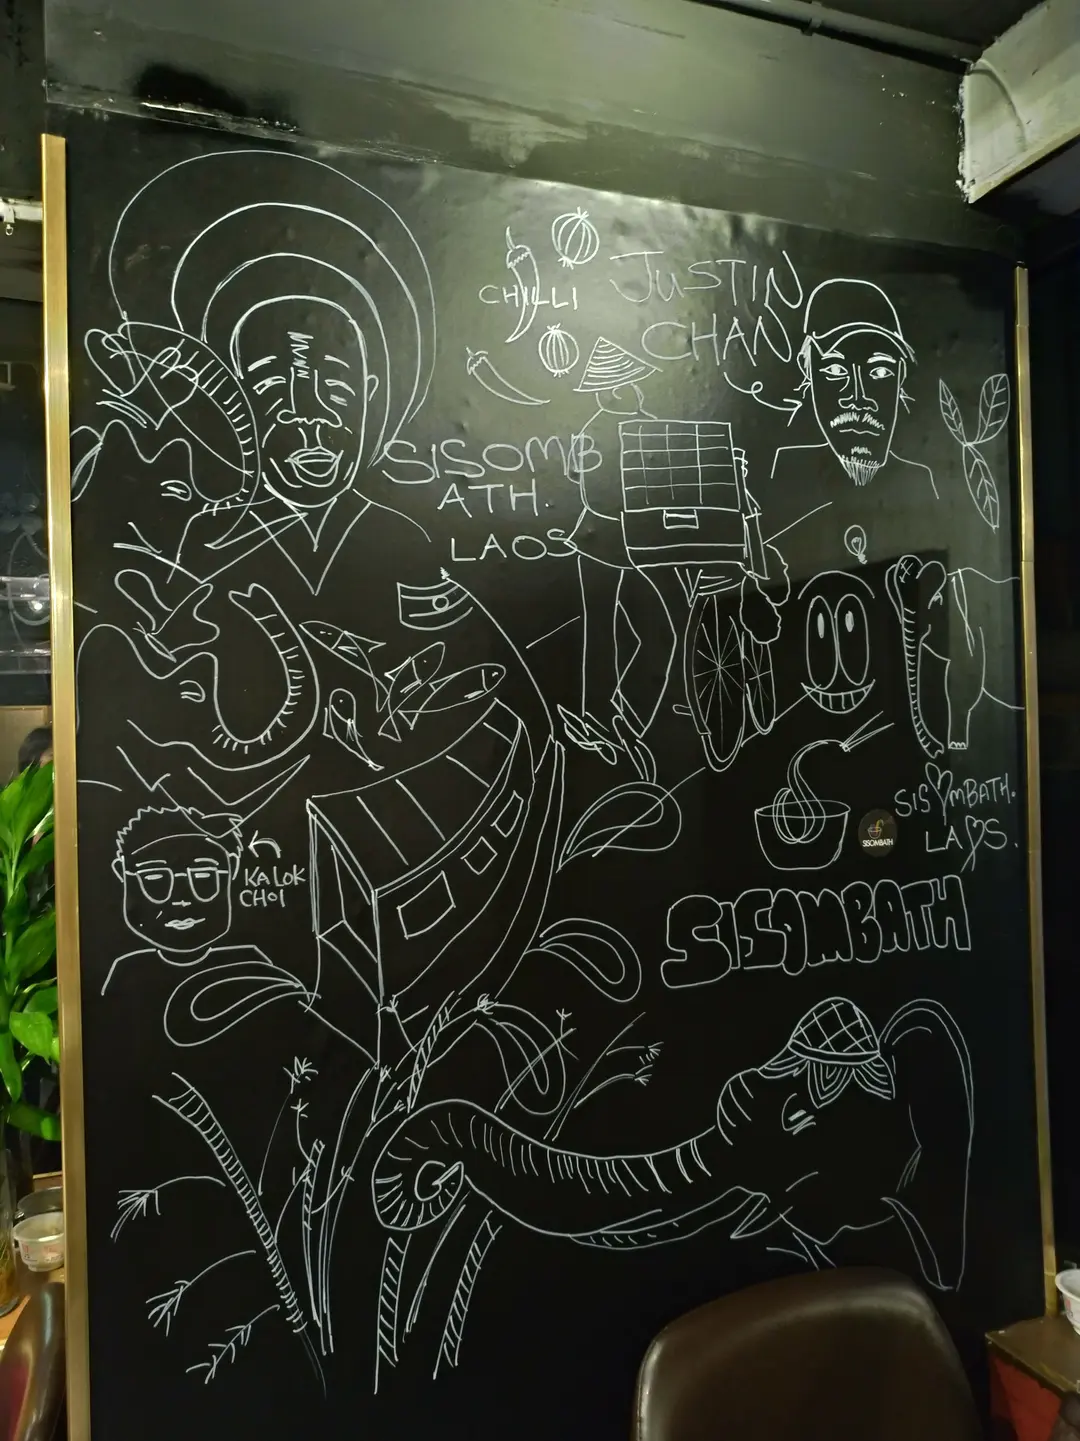 CHILLI
JUSTIN
CHAN
SISOMB
ATH.
LAOS
SISOMBATH.
LAOS.
SISOMBATH
KALOK
CHOI
SISOMBATH